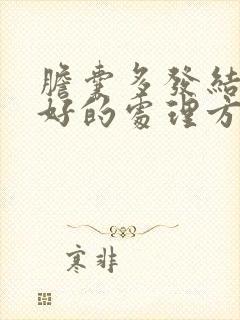 膽囊多發結
好的處理方
寒非